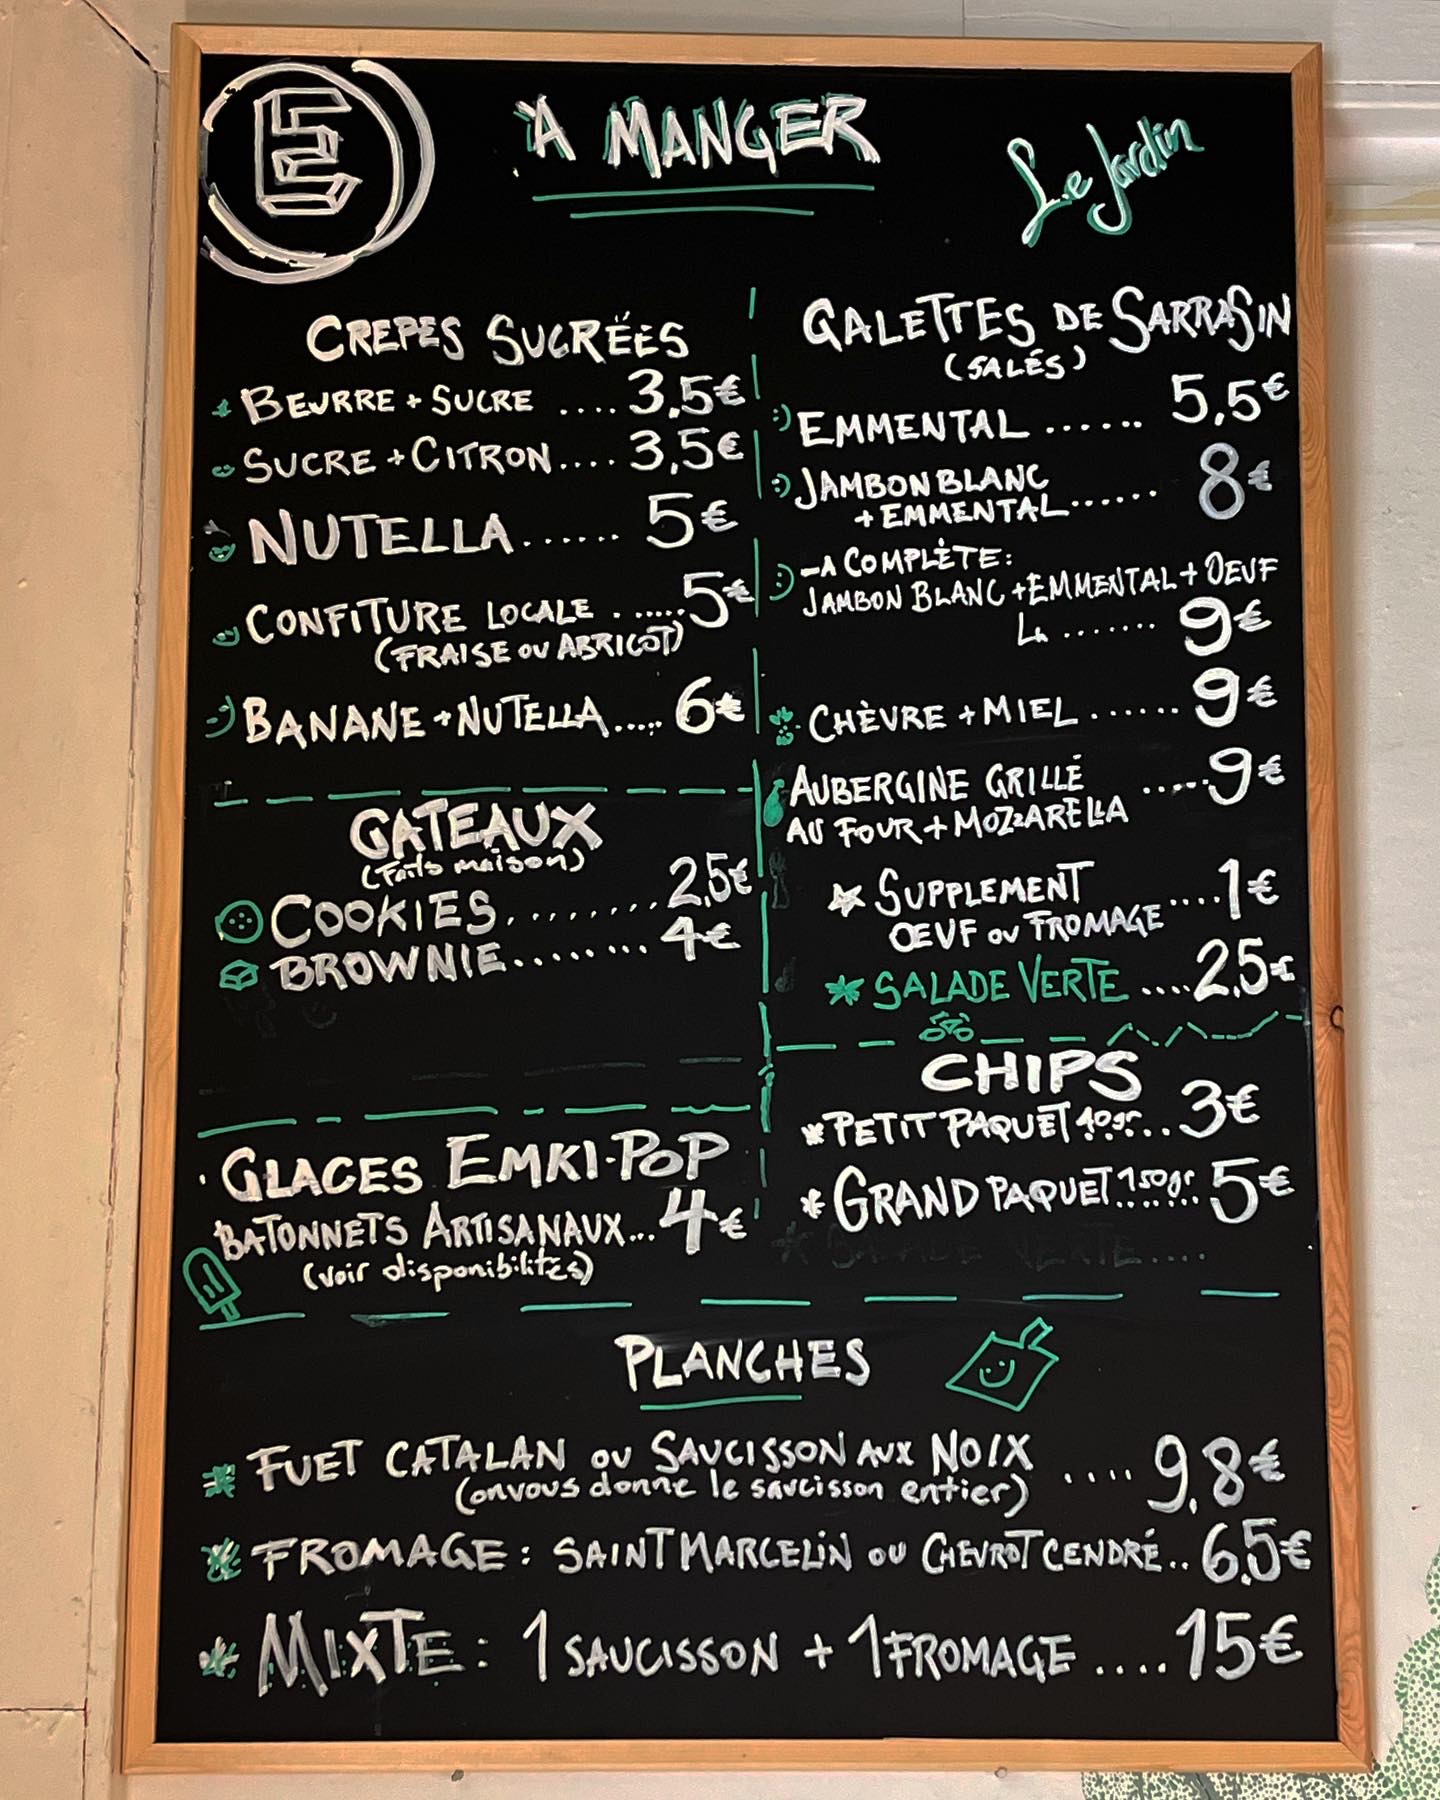 E
À MANGER
Le Jardin
CREPES SUCRÉES
BEURRE + SUCRE .... 3,5€
SUCRE + CITRON.... 3,5€
NUTELLA...... 5€
CONFITURE LOCALE ...... 5€
(FRAISE OU ABRICOT)
BANANE + NUTELLA..... 6€
GATEAUX
(Faits maison)
COOKIES........ 2,5€
BROWNIE........ 4€
GLACES EMKI-POP
BATONNETS ARTISANAUX... 4€
(voir disponibilités)
GALETTES DE SARRASIN
(SALÉS)
EMMENTAL ...... 5,5€
JAMBON BLANC
+ EMMENTAL...... 8€
LA COMPLÈTE:
JAMBON BLANC + EMMENTAL + OEUF
....... 9€
CHÈVRE + MIEL ...... 9€
AUBERGINE GRILLÉ ..... 9€
AU FOUR + MOZZARELLA
SUPPLEMENT .... 1€
ŒUF OU FROMAGE
SALADE VERTE .... 2,5€
CHIPS
* PETIT PAQUET 40gr... 3€
* GRAND PAQUET 150gr 5€
SALADE VERTE ....
PLANCHES
FUET CATALAN OU SAUCISSON AUX NOIX .... 9,8€
(on vous donne le saucisson entier)
FROMAGE: SAINT MARCELIN OU CHEVROT CENDRÉ.. 6,5€
MIXTE: 1 SAUCISSON + 1 FROMAGE .... 15€